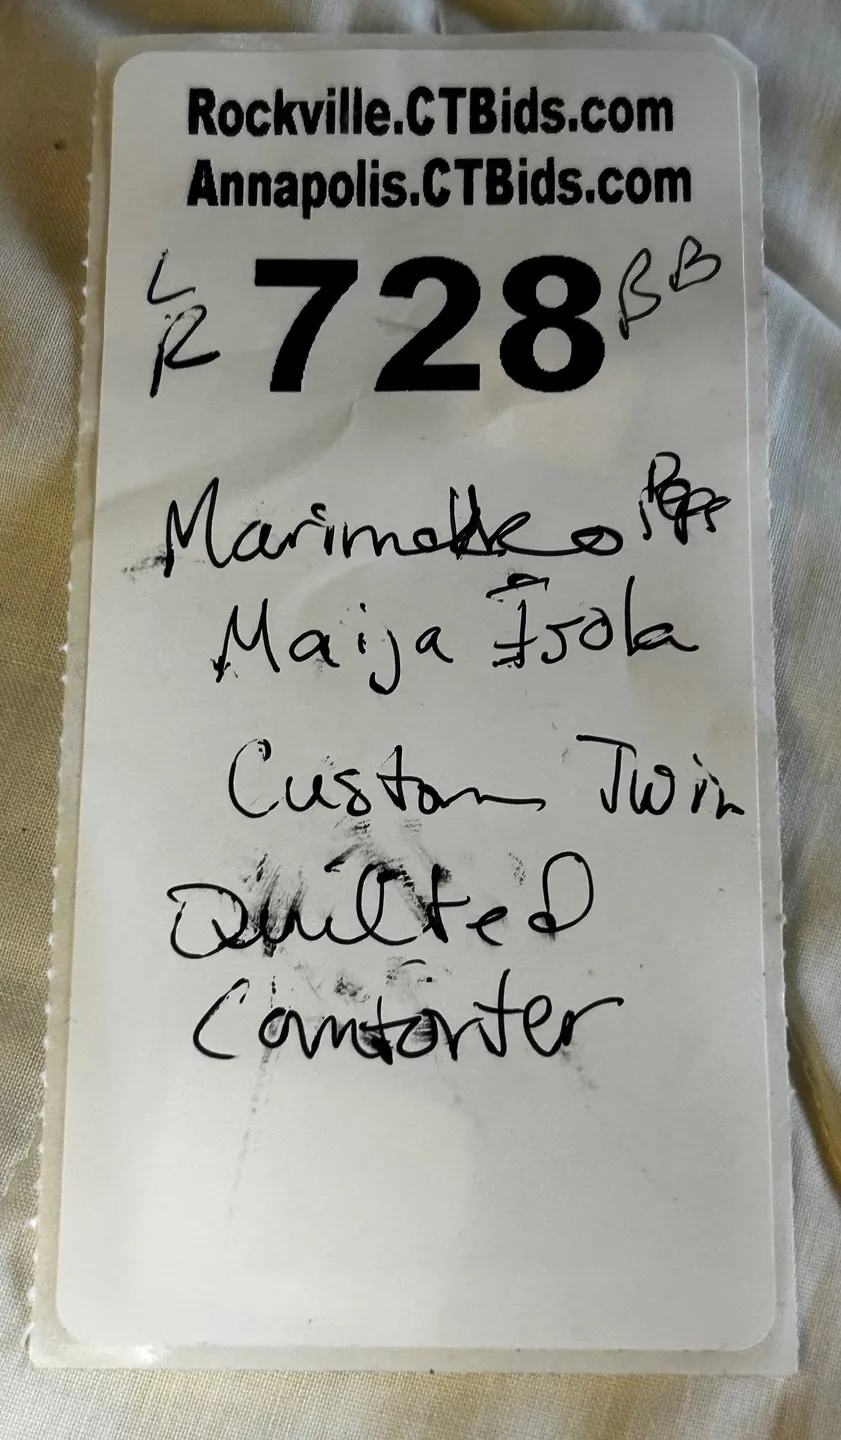 Rockville.CTBids.com
Annapolis.CTBids.com
L
R 728 BB
Marimekko
Maija Isola
Custom Twin
Quilted
Comforter